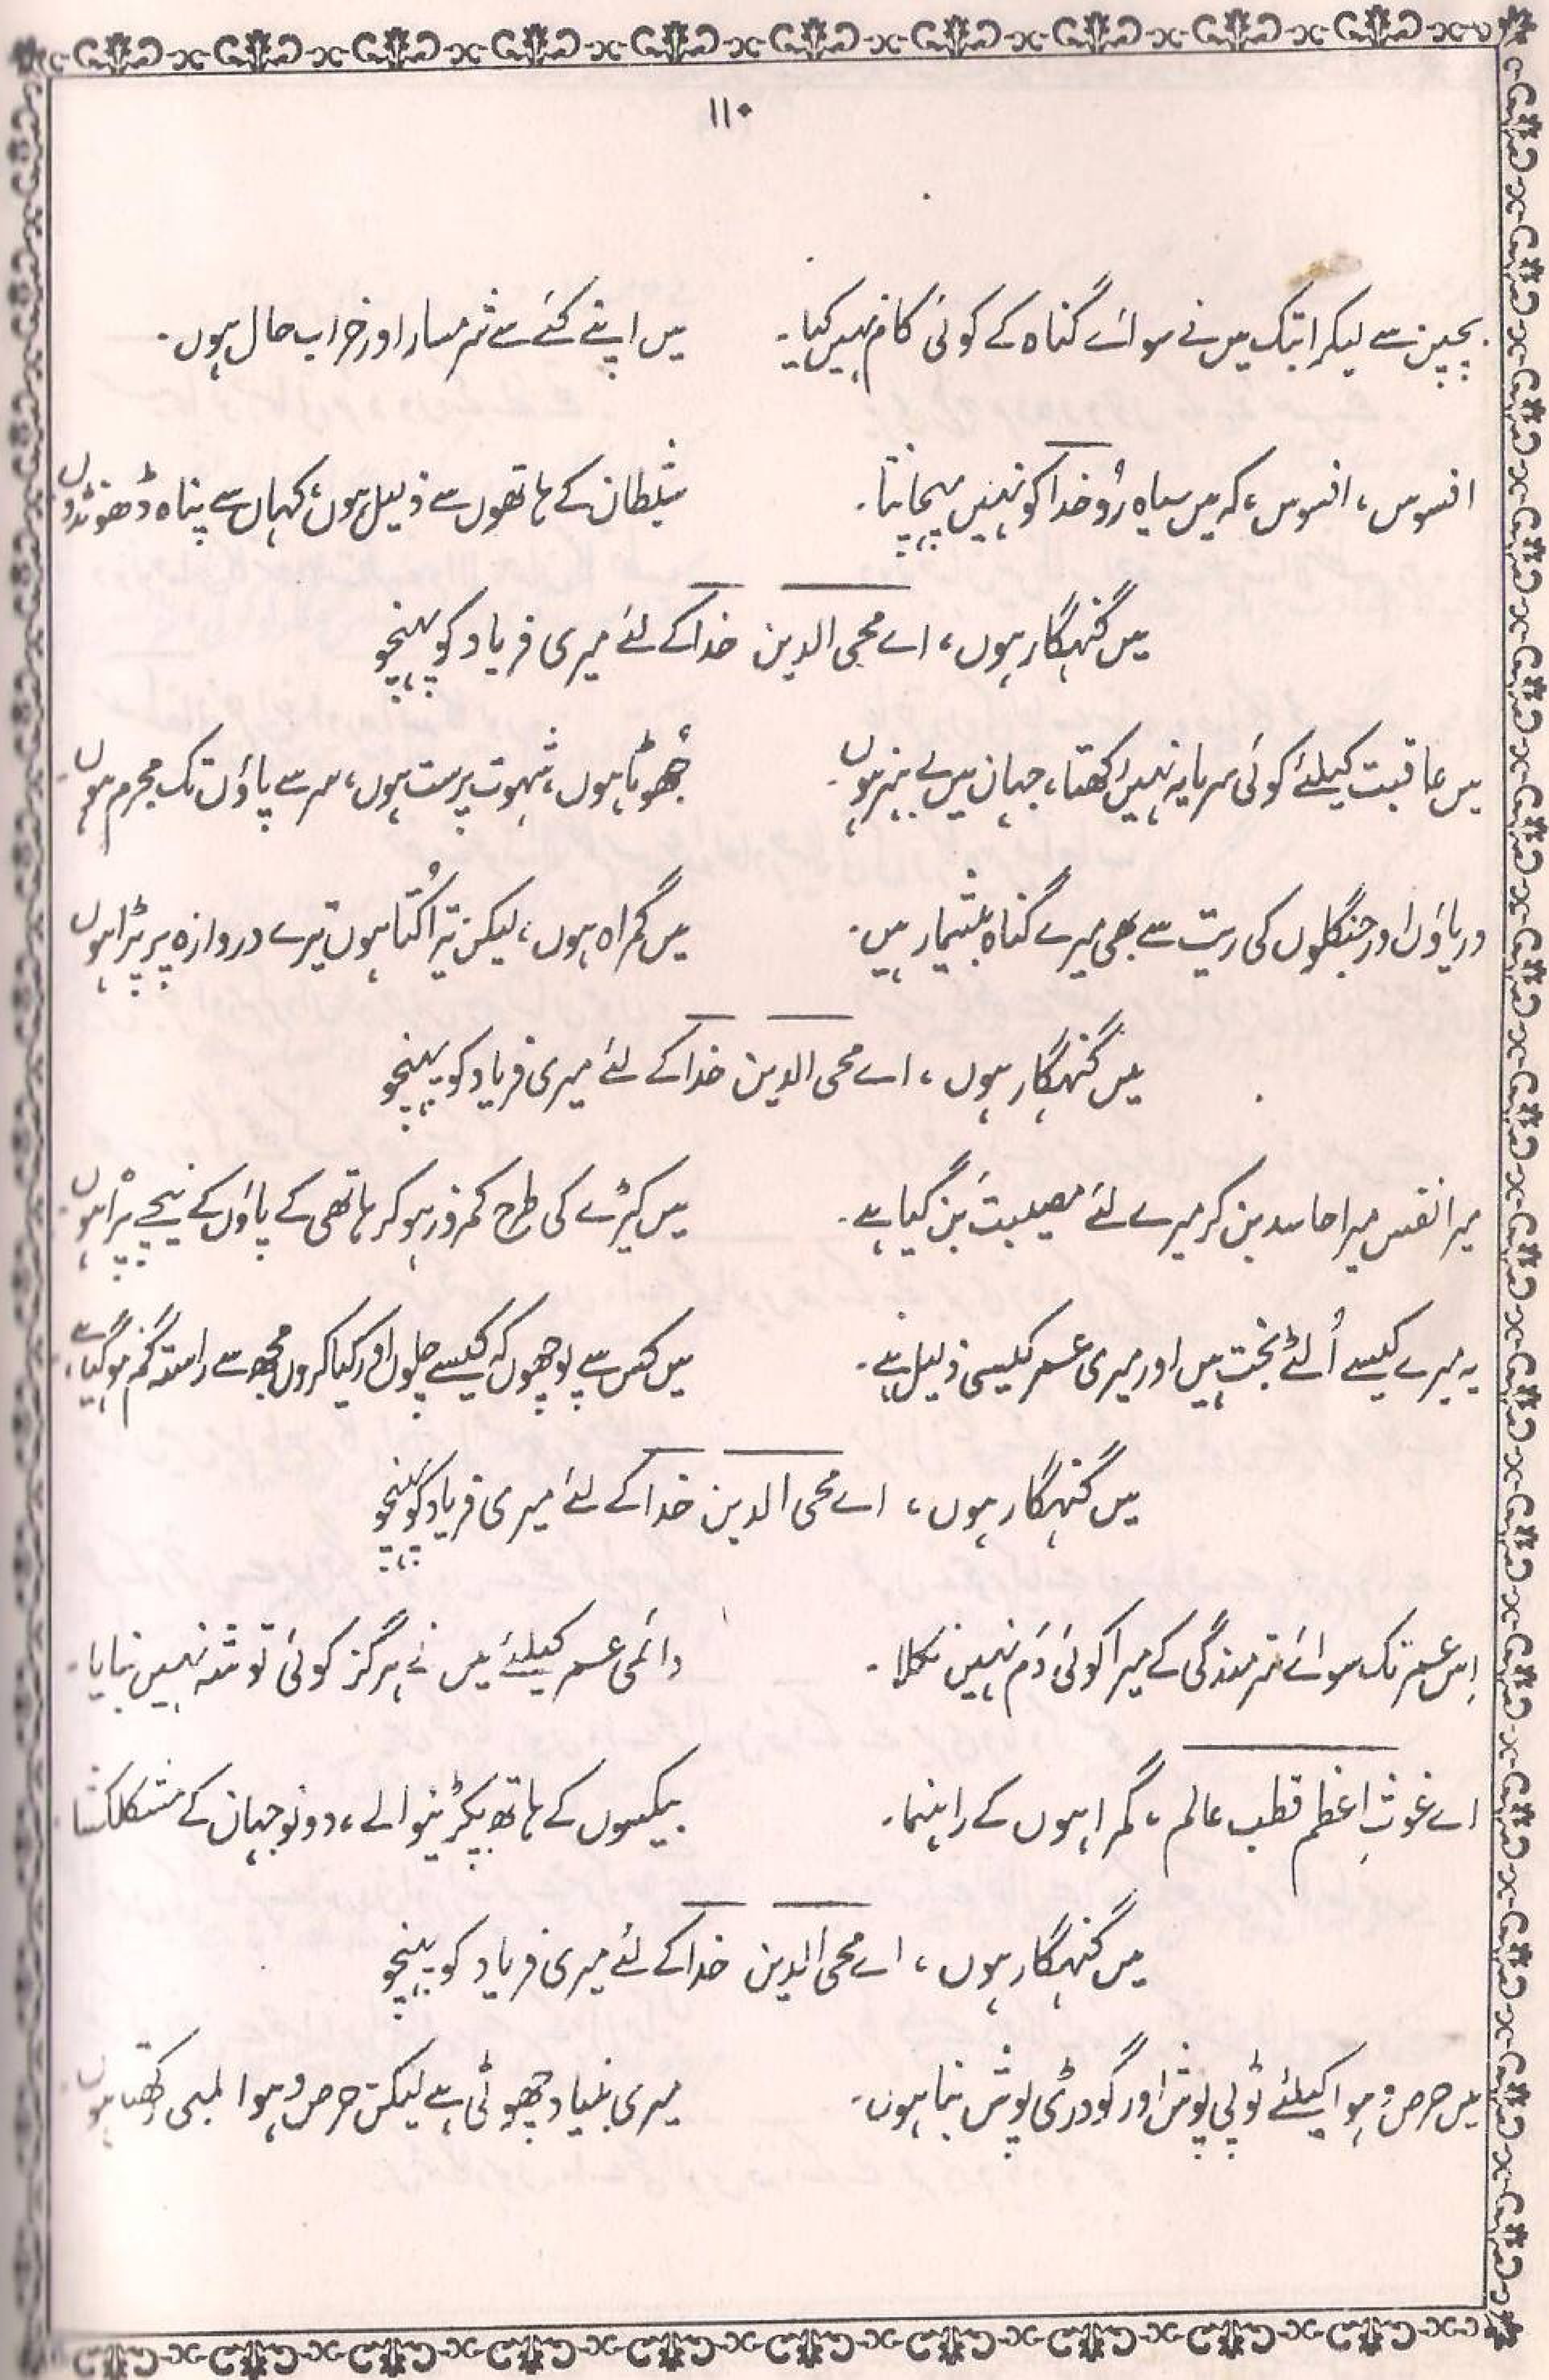 ۱۱۰
بچپن سے لیکر ابتک میں نے سوائے گناہ کے کوئی کام نہیں کیا۔ میں اپنے کئے سے شرمسار اور خراب حال ہوں۔
افسوس، افسوس، کہ میں سیاہ رُو خدا کو نہیں پہچانتا۔ شیطان کے ہاتھوں سے ذلیل ہوں، کہاں سے پناہ ڈھونڈوں
میں گنہگار ہوں، اے محی الدین خدا کے لئے میری فریاد کو پہنچو
میں عاقبت کیلئے کوئی سرمایہ نہیں رکھتا، جہان میں بے ہنر ہوں۔ جُھوٹا ہوں، شہوت پرست ہوں، سر سے پاؤں تک مجرم ہوں۔
دریاؤں اور جنگلوں کی ریت سے بھی میرے گناہ بیشمار ہیں۔ میں گمراہ ہوں، لیکن تیرا کُتا ہوں تیرے دروازہ پر پڑا ہوں
میں گنہگار ہوں، اے محی الدین خدا کے لئے میری فریاد کو پہنچو
میرا نفس میرا حاسد بن کر میرے لئے مصیبت بَن گیا ہے۔ میں کیڑے کی طرح کمزور ہو کر ہاتھی کے پاؤں کے نیچے پڑا ہوں۔
یہ میرے کیسے اُلٹے بخت ہیں اور میری عمر کیسی ذلیل ہے۔ میں کس سے پوچھوں کہ کیسے چلوں اور کیا کروں مجھ سے راستہ گم ہو گیا ہے۔
میں گنہگار ہوں، اے محی الدین خدا کے لئے میری فریاد کو پہنچو
اِس عمر تک سوائے شرمندگی کے میرا کوئی دَم نہیں نکلا۔ دائمی عمر کیلئے میں نے ہرگز کوئی توشہ نہیں بنایا۔
اے غوثِ اعظم قطب عالم، گمراہوں کے راہنما۔ بیکسوں کے ہاتھ پکڑنیوالے، دونو جہان کے مشکلکشا۔
میں گنہگار ہوں، اے محی الدین خدا کے لئے میری فریاد کو پہنچو
میں حرص و ہوا کیلئے ٹوپی پوش اور گودڑی پوش بنا ہوں۔ میری بنیاد چھوٹی ہے لیکن حرص و ہوا لمبی رکھتا ہوں۔